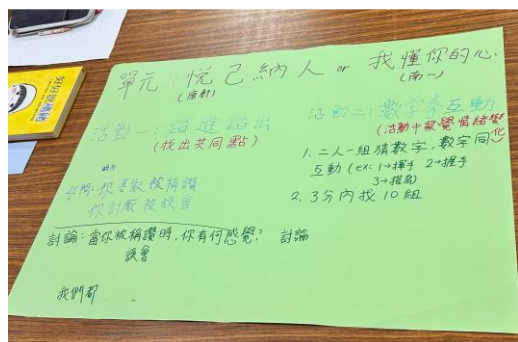 單元：悅己納人 or 我懂你的心
(康軒)
(南一)
活動一：踏進踏出
(找出共同點)
你喜歡被稱讚
你討厭被誤會
討論：當你被稱讚時，你有何感覺？ 討論
誤會
我們都
活動二：數字拳互動
(活動中察覺情緒變化)
1. 二人一組猜數字，數字同
互動 (ex: 1→揮手 2→握手
3→摸肩)
2. 3分內找10組
好好